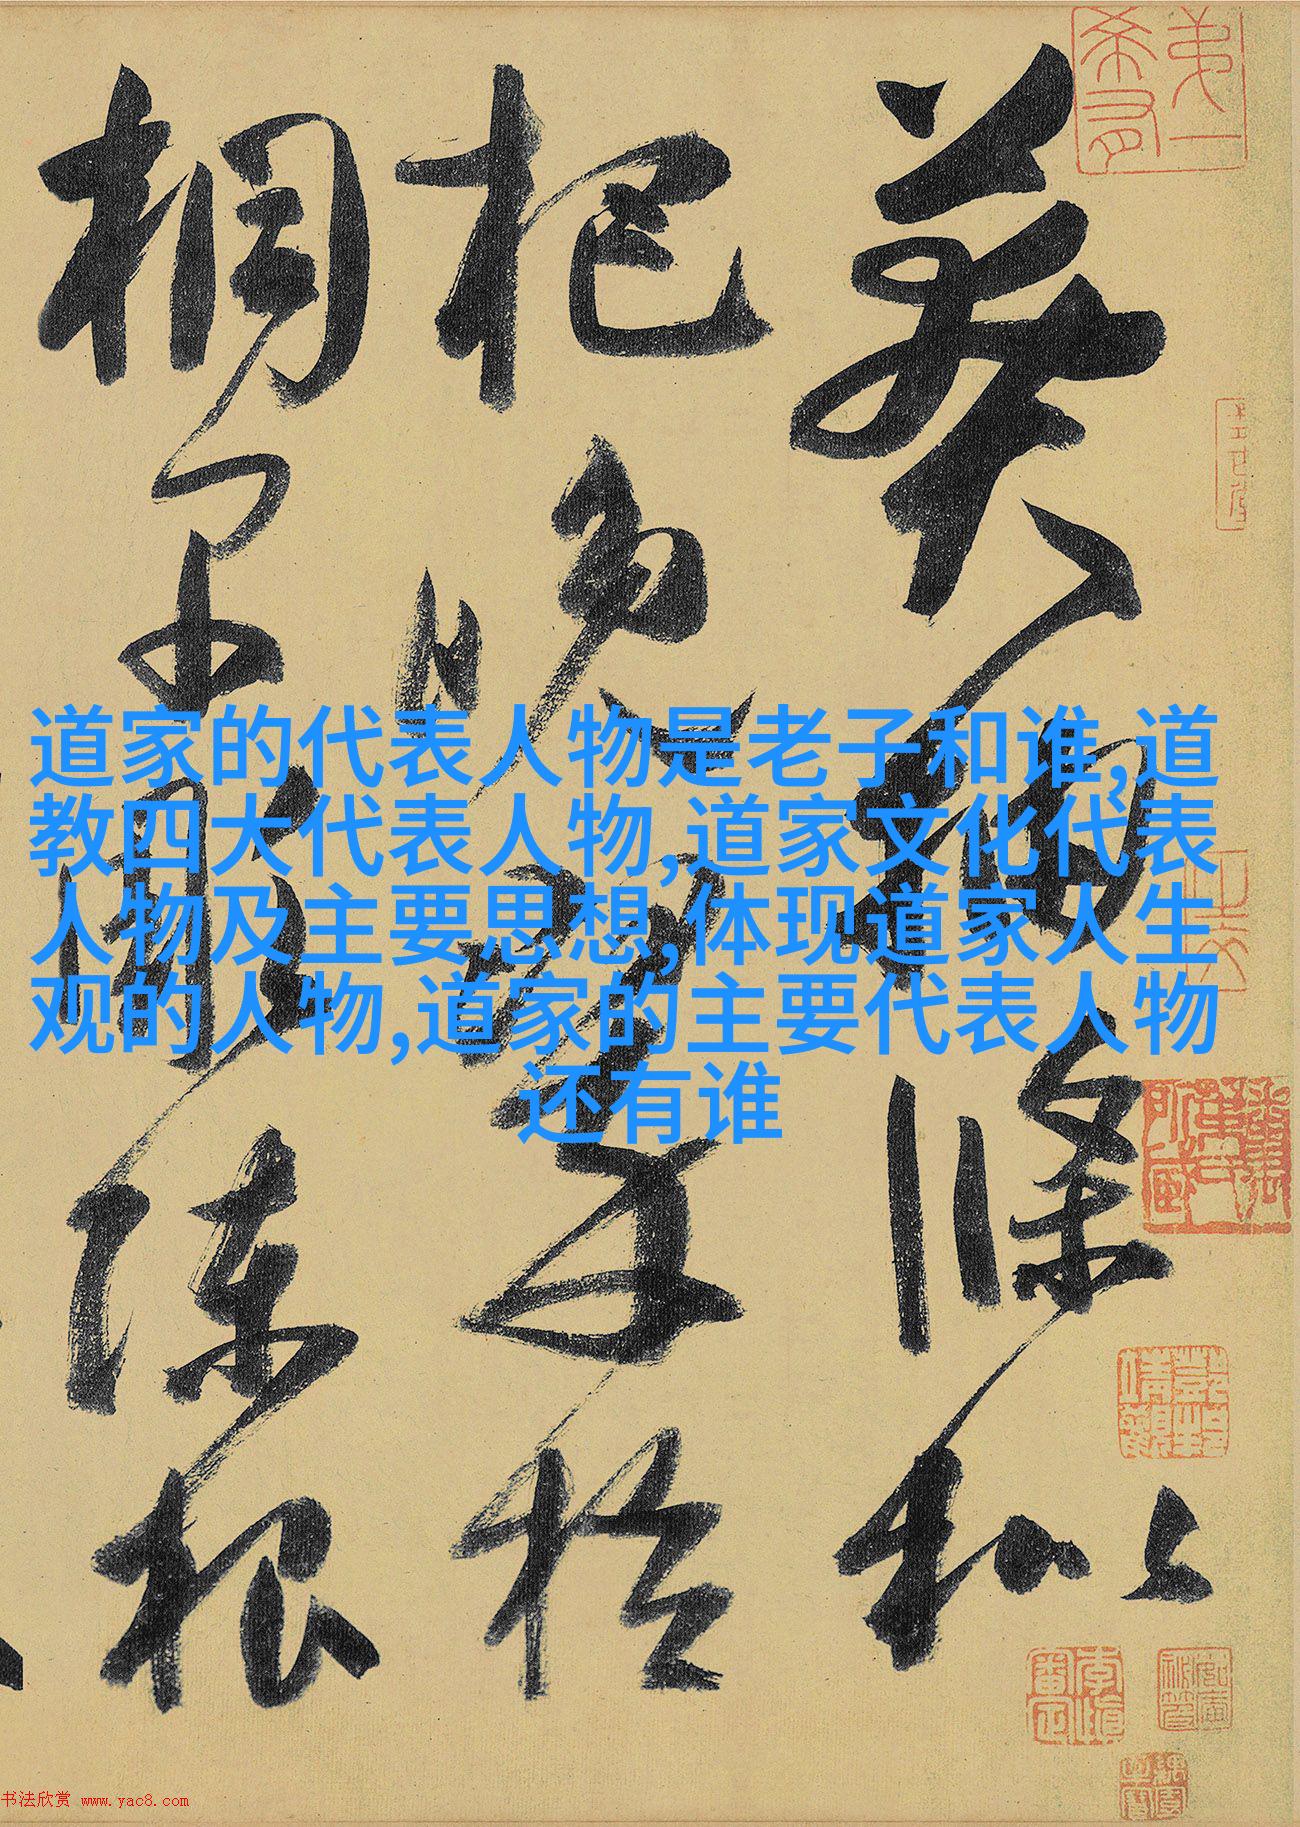 莽抽條枇
杷晚翠梧
桐早凋陳根
道家的代表人物是老子和谁,道
教四大代表人物,道家文化代表
人物及主要思想,体现道家人生
观的人物,道家的主要代表人物
还有谁
书法欣赏 www.yac8.com